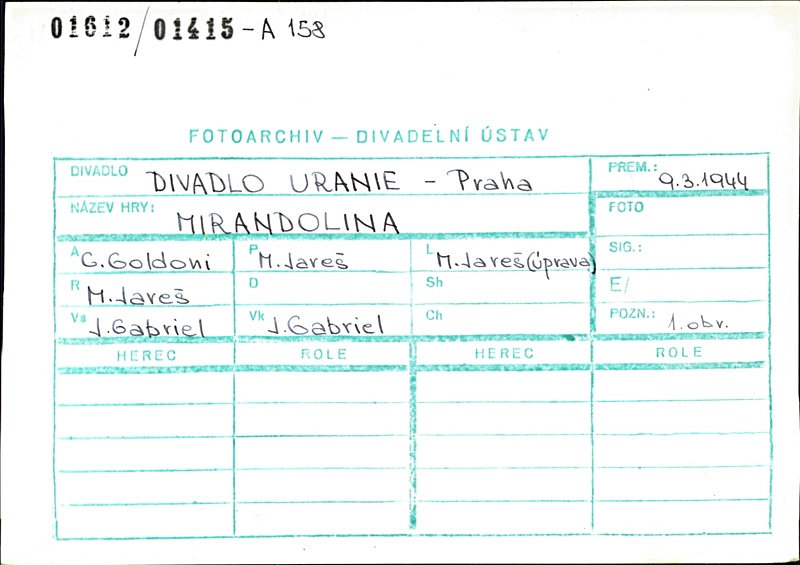 01612/01415-A 158
FOTOARCHIV — DIVADELNÍ ÚSTAV
DIVADLO DIVADLO URANIE - Praha PREM.: 9.3.1944
NÁZEV HRY: MIRANDOLINA FOTO
A C. Goldoni P M. Jareš L M. Jareš (úprava) SIG.:
R M. Jareš D Sh E/
Vs J. Gabriel Vk J. Gabriel Ch POZN.: 1. obr.
HEREC ROLE HEREC ROLE